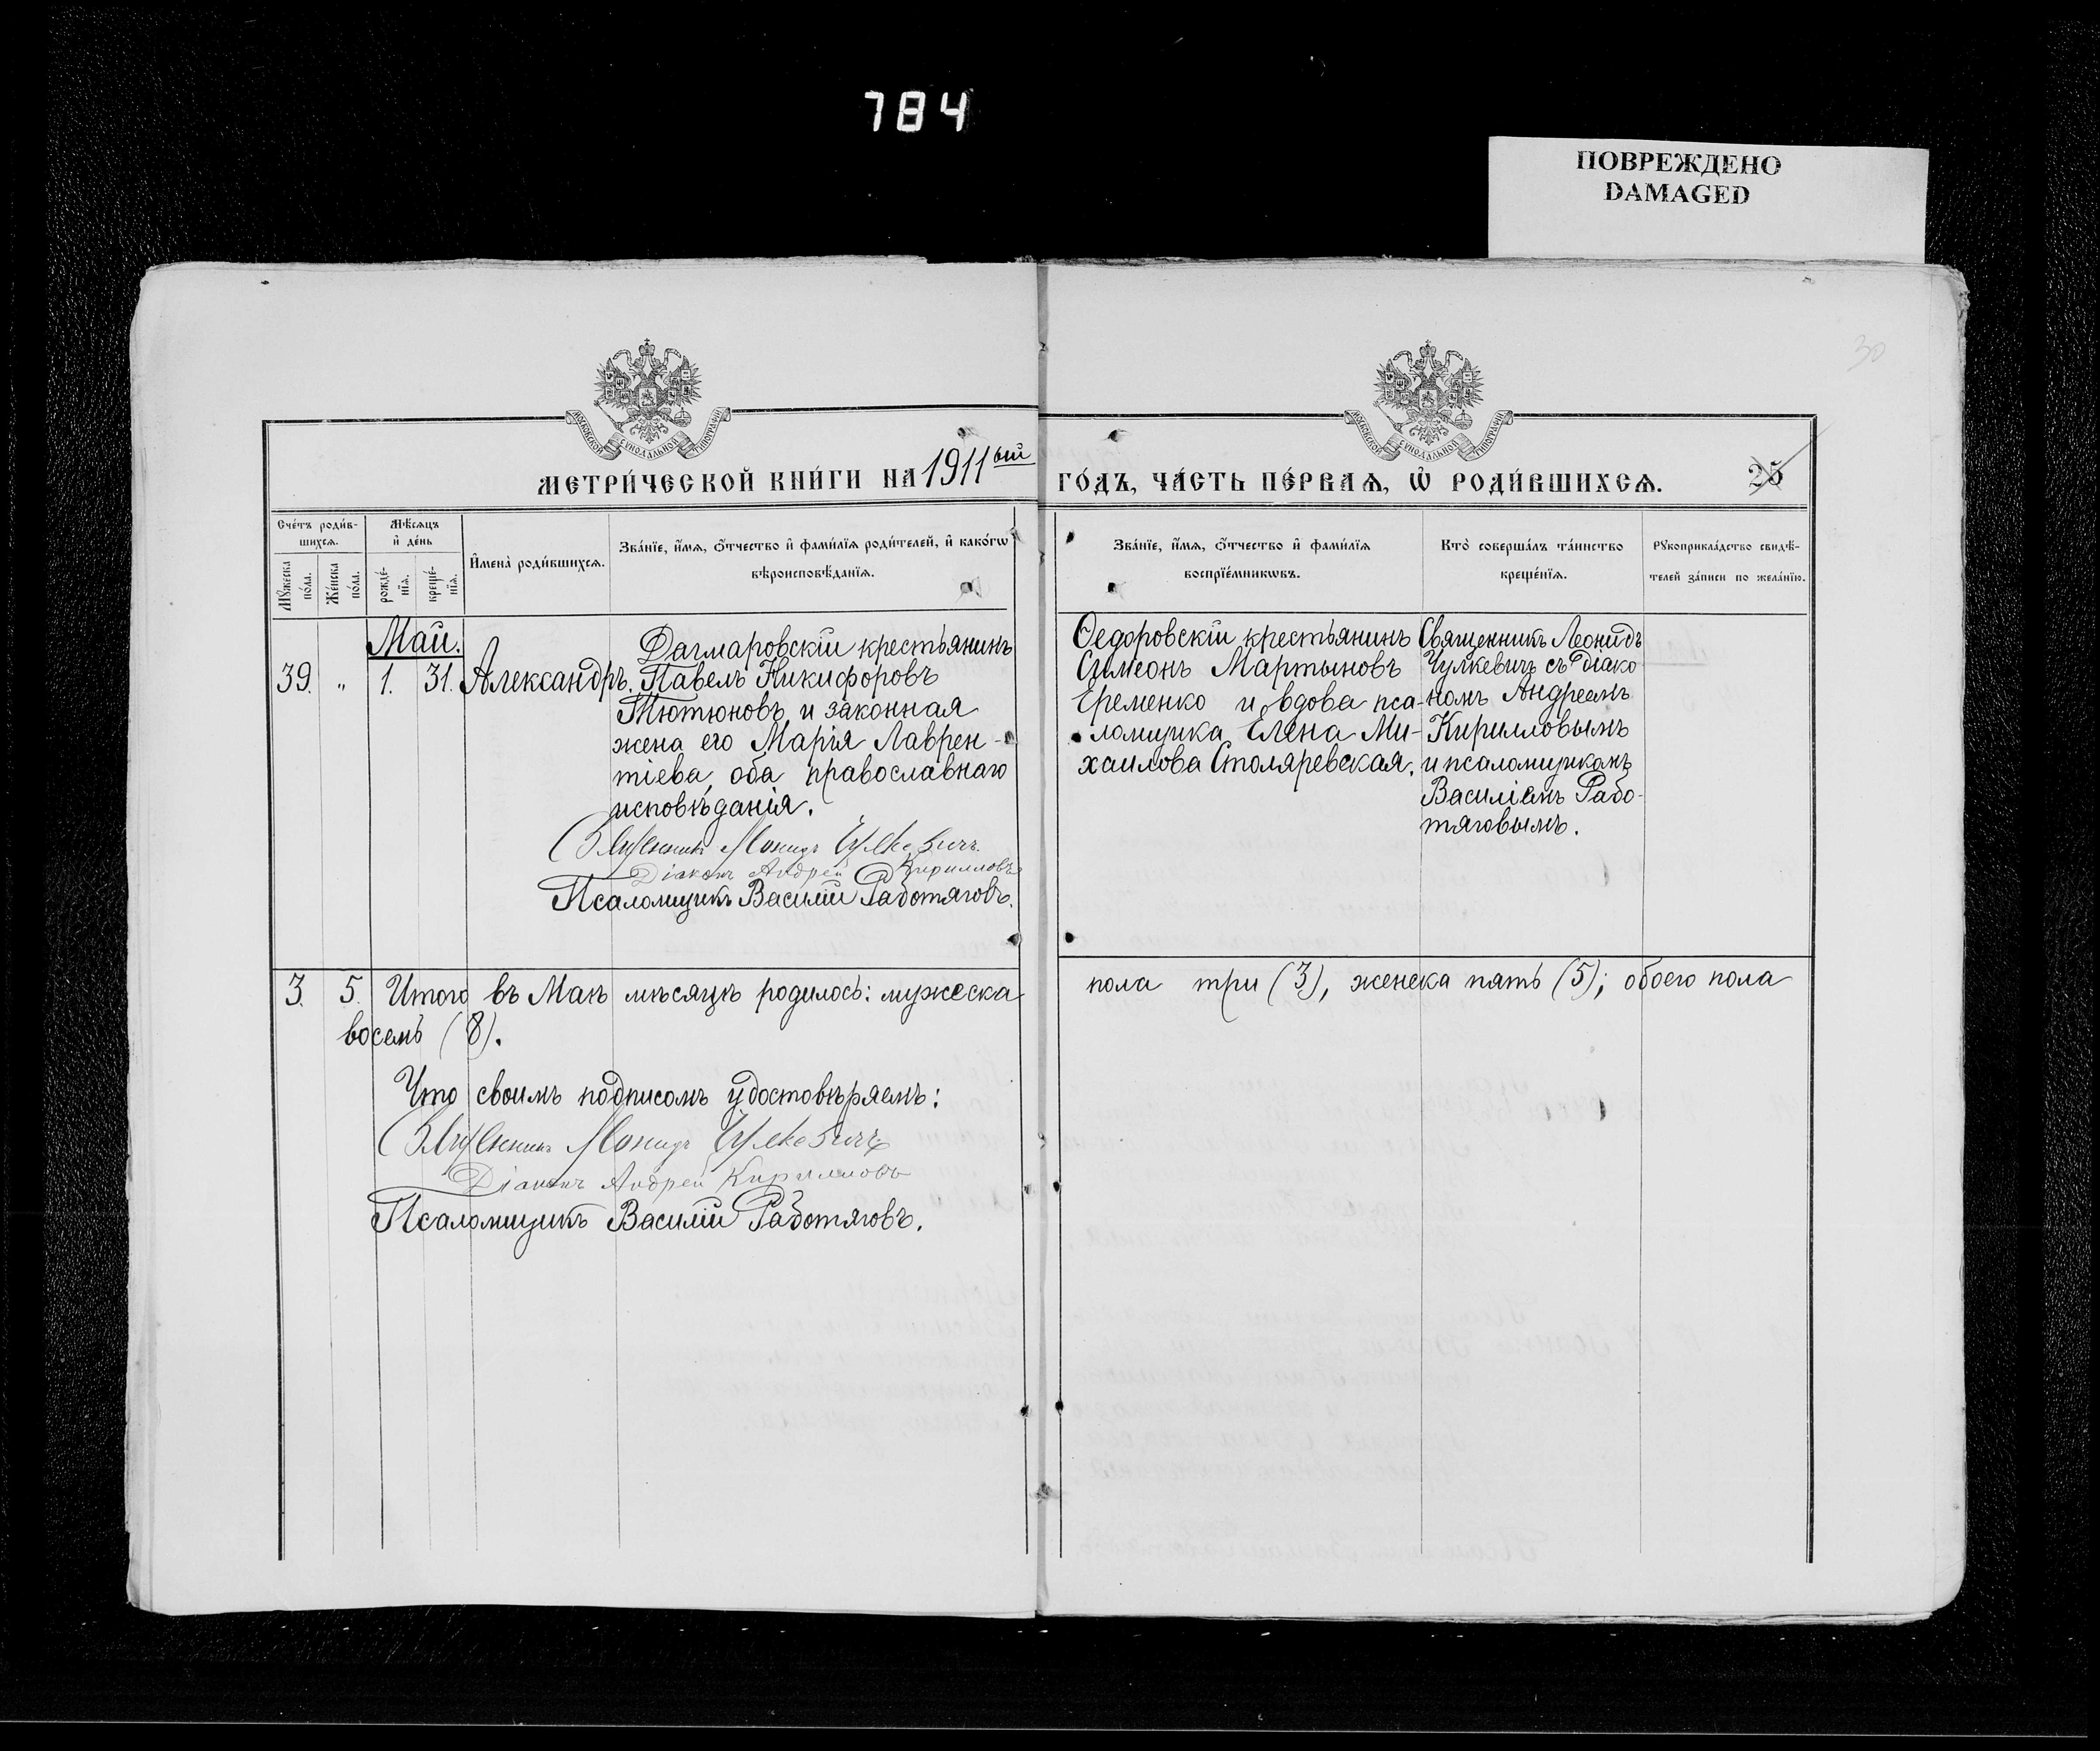 784
ПОВРЕЖДЕНО
DAMAGED
30
МОСКОВСКОЙ СУНОДАЛЬНОЙ ТИПОГРАФІИ
МОСКОВСКОЙ СУНОДАЛЬНОЙ ТИПОГРАФІИ
МЕТРИ́ЧЕСКОЙ КНИ́ГИ НА 1911ый
ГО́ДЪ, ЧА́СТЬ ПЕ́РВАѦ, Ѡ҆ РОДИ́ВШИХСѦ.
25
Сче́тъ роди́в-
шихсѧ.
Мѣ́сѧцъ
и҆ де́нь
И҆мена̀ роди́вшихсѧ.
Зва́нїе, и҆́мѧ, ѻ҆́тчество и҆ фами́лїѧ роди́телей, и҆ како́гѡ
вѣроисповѣ́данїѧ.
Мꙋ́жеска
по́ла.
Же́нска
по́ла.
рожде́-
нїѧ.
креще́-
нїѧ.
Зва́нїе, и҆́мѧ, ѻ҆́тчество и҆ фами́лїѧ
воспрїе́мникѡвъ.
Кто̀ соверша́лъ та́инство
креще́нїѧ.
Рꙋкоприкла́дство свидѣ́-
телей за́писи по жела́нїю.
Май.
39. „ 1. 31. Александръ.
Дагмаровскій крестьянинъ
Павелъ Никифоровъ
Тютюновъ и законная
жена его Марія Лаврен-
тіева, оба православнаго
исповѣданія.
Священникъ Леонидъ Чулкевичъ.
Діаконъ Андрей Кирилловъ
Псаломщикъ Василій Работяговъ.
Ѳедоровскій крестьянинъ
Симеонъ Мартыновъ
Еременко и вдова пса-
ломщика Елена Ми-
хаилова Столяревская.
Священникъ Леонидъ
Чулкевичъ съ діако-
номъ Андреемъ
Кирилловымъ
и псаломщикомъ
Василіемъ Рабо-
тяговымъ.
3. 5. Итого въ Маѣ мѣсяцѣ родилось: мужеска
пола три (3), женска пять (5); обоего пола
восемь (8).
Что своимъ подписомъ удостовѣряемъ:
Священникъ Леонидъ Чулкевичъ
Діаконъ Андрей Кирилловъ
Псаломщикъ Василій Работяговъ.